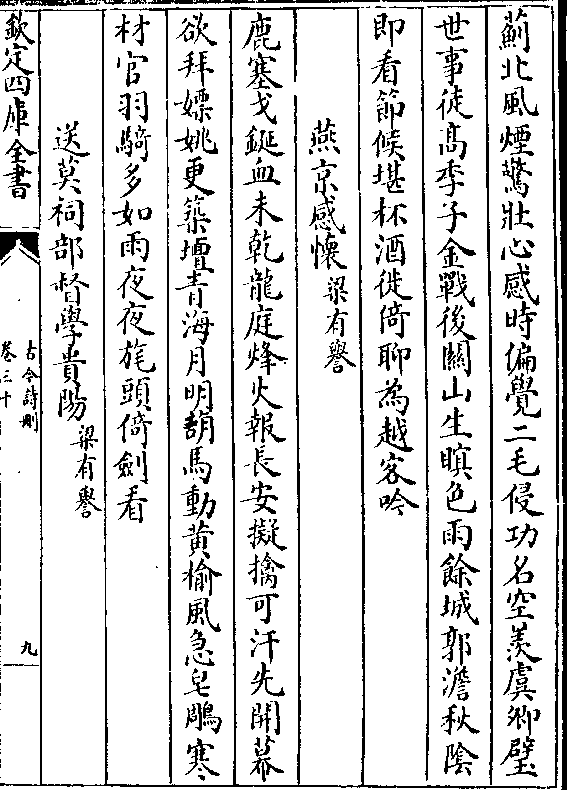 薊北風煙驚壯心感時偏覺二毛侵功名空羨虞卿璧
世事徒髙季子金戰後關山生暝色雨餘城郭澹秋陰
即看節候堪杯酒徙倚聊為越客吟
燕京感懷梁有譽
鹿塞戈鋋血未乾龍庭烽火報長安擬擒可汗先開幕
欲拜嫖姚更築壇青海月明胡馬動黄榆風急皂雕寒
材官羽騎多如雨夜夜旄頭倚劍看
送莫祠部督學貴陽梁有譽
欽定四庫全書
古今詩刪
卷三十
九